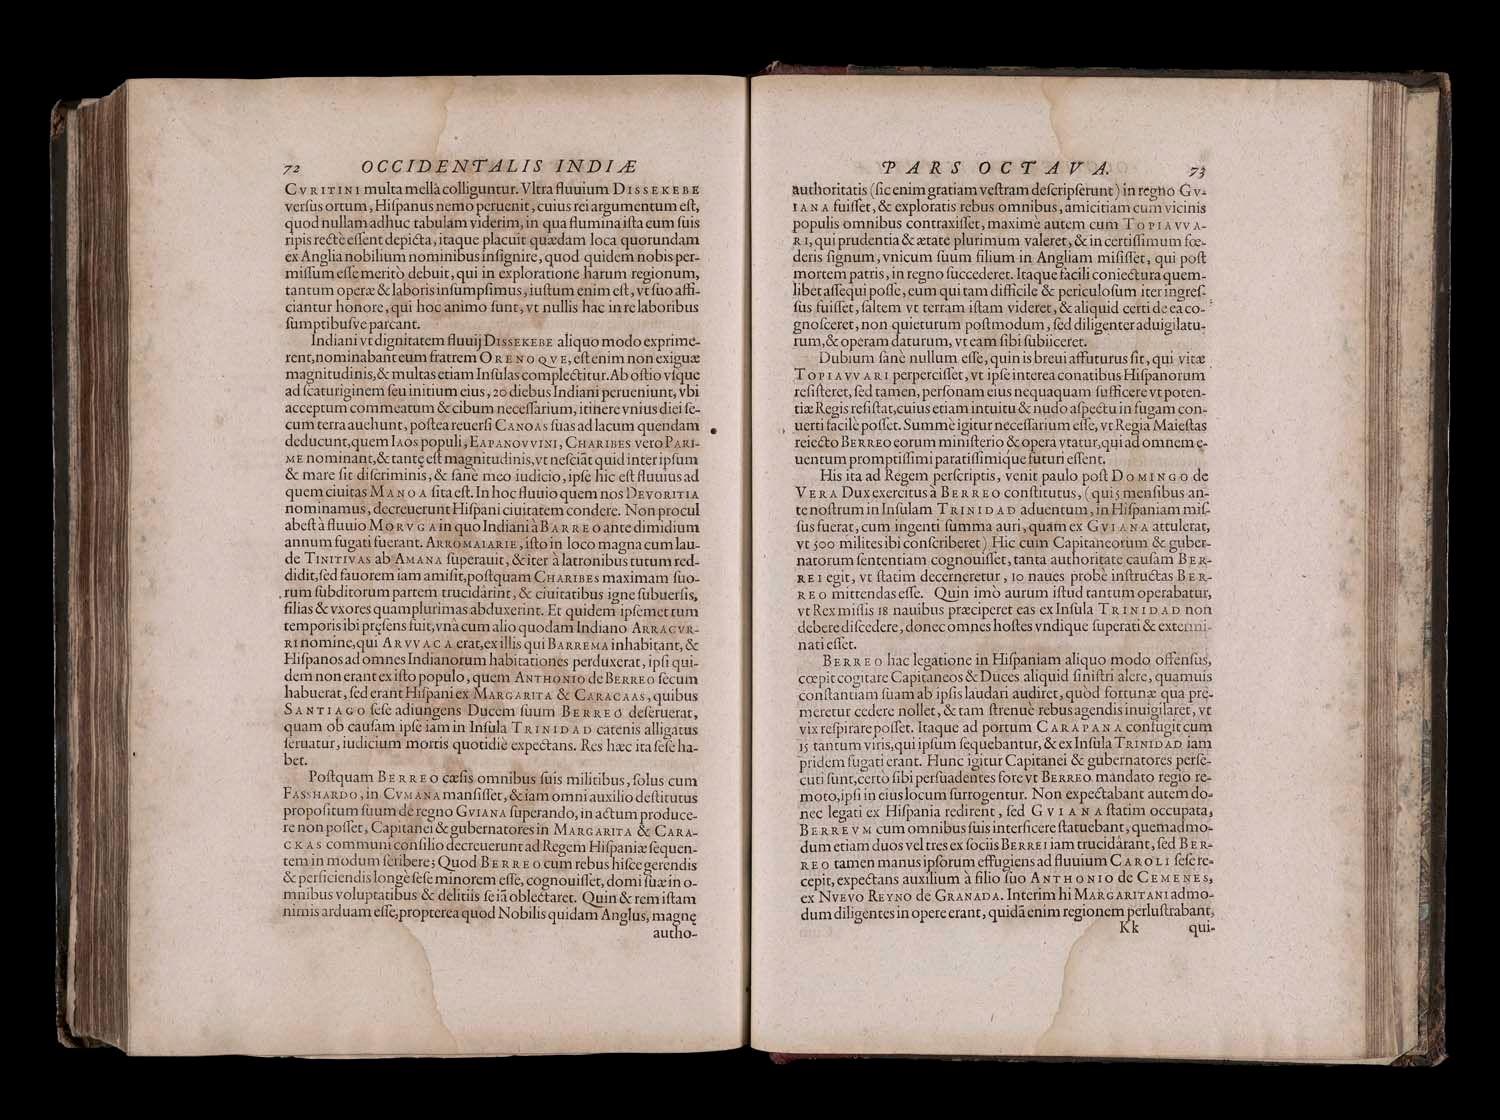 72 OCCIDENTALIS INDIÆ
CVRITINI multa mella colliguntur. Vltra fluuium DISSEKEBE
verſus ortum, Hiſpanus nemo peruenit, cuius rei argumentum eſt,
quod nullam adhuc tabulam viderim, in qua flumina iſta cum ſuis
ripis rectè eſſent depicta, itaque placuit quædam loca quorundam
ex Anglia nobilium nominibus inſignire, quod quidem nobis per-
miſſum eſſe meritò debuit, qui in exploratione harum regionum,
tantum operæ & laboris inſumpſimus, iuſtum enim eſt, vt ſuo affi-
ciantur honore, qui hoc animo ſunt, vt nullis hac in re laboribus
ſumptibuſve parcant.
Indiani vt dignitatem fluuij DISSEKEBE aliquo modo exprime-
rent, nominabant eum fratrem ORENOQVE, eſt enim non exiguæ
magnitudinis, & multas etiam Inſulas complectitur. Ab oſtio vſque
ad ſcaturiginem ſeu initium eius, 20 diebus Indiani perueniunt, vbi
acceptum commeatum & cibum neceſſarium, itinere vnius diei ſe-
cum terra auehunt, poſtea reuerſi CANOAS ſuas ad lacum quendam
deducunt, quem IAOS populi, EAPANOVVINI, CHARIBES vero PARI-
ME nominant, & tantę eſt magnitudinis, vt neſciāt quid inter ipſum
& mare ſit diſcriminis, & ſanè meo iudicio, ipſe hic eſt fluuius ad
quem ciuitas MANOA ſita eſt. In hoc fluuio quem nos DEVORITIA
nominamus, decreuerunt Hiſpani ciuitatem condere. Non procul
abeſt à fluuio MORVGA in quo Indiani à BARREO ante dimidium
annum fugati fuerant. ARROMAIARIE, iſto in loco magna cum lau-
de TINITIVAS ab AMANA ſuperauit, & iter à latronibus tutum red-
didit, ſed fauorem iam amiſit, poſtquam CHARIBES maximam ſuo-
rum ſubditorum partem trucidârint, & ciuitatibus igne ſubuerſis,
filias & vxores quamplurimas abduxerint. Et quidem ipſemet tum
temporis ibi pręſens fuit, vnà cum alio quodam Indiano ARRACVR-
RI nomine, qui ARVVACA erat, ex illis qui BARREMA inhabitant, &
Hiſpanos ad omnes Indianorum habitationes perduxerat, ipſi qui-
dem non erant ex iſto populo, quem ANTHONIO de BERREO ſecum
habuerat, ſed erant Hiſpani ex MARGARITA & CARACAAS, quibus
SANTIAGO ſeſe adiungens Ducem ſuum BERREO deſeruerat,
quam ob cauſam ipſe iam in Inſula TRINIDAD catenis alligatus
ſeruatur, iudicium mortis quotidiè expectans. Res hæc ita ſeſe ha-
bet.
Poſtquam BERREO cæſis omnibus ſuis militibus, ſolus cum
FASSHARDO, in CVMANA manſiſſet, & iam omni auxilio deſtitutus
propoſitum ſuum de regno GVIANA ſuperando, in actum produce-
re non poſſet, Capitanei & gubernatores in MARGARITA & CARA-
CKAS communi conſilio decreuerunt ad Regem Hiſpaniæ ſequen-
tem in modum ſcribere; Quod BERREO cum rebus hiſce gerendis
& perficiendis longè ſeſe minorem eſſe, cognouiſſet, domi ſuæ in o-
mnibus voluptatibus & delitiis ſe iā oblectaret. Quin & rem iſtam
nimis arduam eſſe, propterea quod Nobilis quidam Anglus, magnę
autho-
PARS OCTAVA. 73
authoritatis (ſic enim gratiam veſtram deſcripſerunt) in regno GV-
IANA fuiſſet, & exploratis rebus omnibus, amicitiam cum vicinis
populis omnibus contraxiſſet, maximè autem cum TOPIAVVA-
RI, qui prudentia & ætate plurimum valeret, & in certiſſimum fœ-
deris ſignum, vnicum ſuum filium in Angliam miſiſſet, qui poſt
mortem patris, in regno ſuccederet. Itaque facili coniectura quem-
libet aſſequi poſſe, eum qui tam difficile & periculoſum iter ingreſ-
ſus fuiſſet, ſaltem vt terram iſtam videret, & aliquid certi de ea co-
gnoſceret, non quieturum poſtmodum, ſed diligenter aduigilatu-
rum, & operam daturum, vt eam ſibi ſubiiceret.
Dubium ſanè nullum eſſe, quin is breui affuturus ſit, qui vitæ
TOPIAVVARI perperciſſet, vt ipſe interea conatibus Hiſpanorum
reſiſteret, ſed tamen, perſonam eius nequaquam ſufficere vt poten-
tiæ Regis reſiſtat, cuius etiam intuitu & nudo aſpectu in fugam con-
uerti facilè poſſet. Summè igitur neceſſarium eſſe, vt Regia Maieſtas
reiecto BERREO eorum miniſterio & opera vtatur, qui ad omnem e-
uentum promptiſſimi paratiſſimique futuri eſſent.
His ita ad Regem perſcriptis, venit paulo poſt DOMINGO de
VERA Dux exercitus à BERREO conſtitutus, (qui 5 menſibus an-
te noſtrum in Inſulam TRINIDAD aduentum, in Hiſpaniam miſ-
ſus fuerat, cum ingenti ſumma auri, quam ex GVIANA attulerat,
vt 500 milites ibi conſcriberet) Hic cum Capitaneorum & guber-
natorum ſententiam cognouiſſet, tanta authoritate cauſam BER-
REI egit, vt ſtatim decerneretur, 10 naues probè inſtructas BER-
REO mittendas eſſe. Quin imò aurum iſtud tantum operabatur,
vt Rex miſſis 18 nauibus præciperet eas ex Inſula TRINIDAD non
debere diſcedere, donec omnes hoſtes vndique ſuperati & extermi-
nati eſſet.
BERREO hac legatione in Hiſpaniam aliquo modo offenſus,
cœpit cogitare Capitaneos & Duces aliquid ſiniſtri alere, quamuis
conſtantiam ſuam ab ipſis laudari audiret, quòd fortunæ qua pre-
meretur cedere nollet, & tam ſtrenuè rebus agendis inuigilaret, vt
vix reſpirare poſſet. Itaque ad portum CARAPANA confugit cum
15 tantum viris, qui ipſum ſequebantur, & ex Inſula TRINIDAD iam
pridem fugati erant. Hunc igitur Capitanei & gubernatores perſe-
cuti ſunt, certò ſibi perſuadentes fore vt BERREO mandato regio re-
moto, ipſi in eius locum ſurrogentur. Non expectabant autem do-
nec legati ex Hiſpania redirent, ſed GVIANA ſtatim occupata,
BERREVM cum omnibus ſuis interficere ſtatuebant, quemadmo-
dum etiam duos vel tres ex ſociis BERREI iam trucidârant, ſed BER-
REO tamen manus ipſorum effugiens ad fluuium CAROLI ſeſe re-
cepit, expectans auxilium à filio ſuo ANTHONIO de CEMENES,
ex NVEVO REYNO de GRANADA. Interim hi MARGARITANI admo-
dum diligentes in opere erant, quidā enim regionem perluſtrabant,
Kk qui-